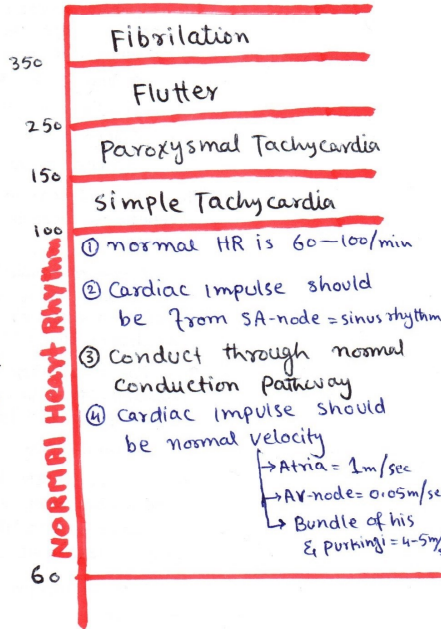 Fibrilation
350
Flutter
250
Paroxysmal Tachycardia
150
Simple Tachycardia
100
NORMAl Heart Rhythm
① normal HR is 60-100/min
② Cardiac impulse should
be from SA-node = sinus rhythm
③ Conduct through normal
conduction Pathway
④ Cardiac impulse should
be normal velocity
→ Atria = 1m/sec
→ AV-node = 0.05m/se
→ Bundle of his
& Purkingi = 4-5m/
60